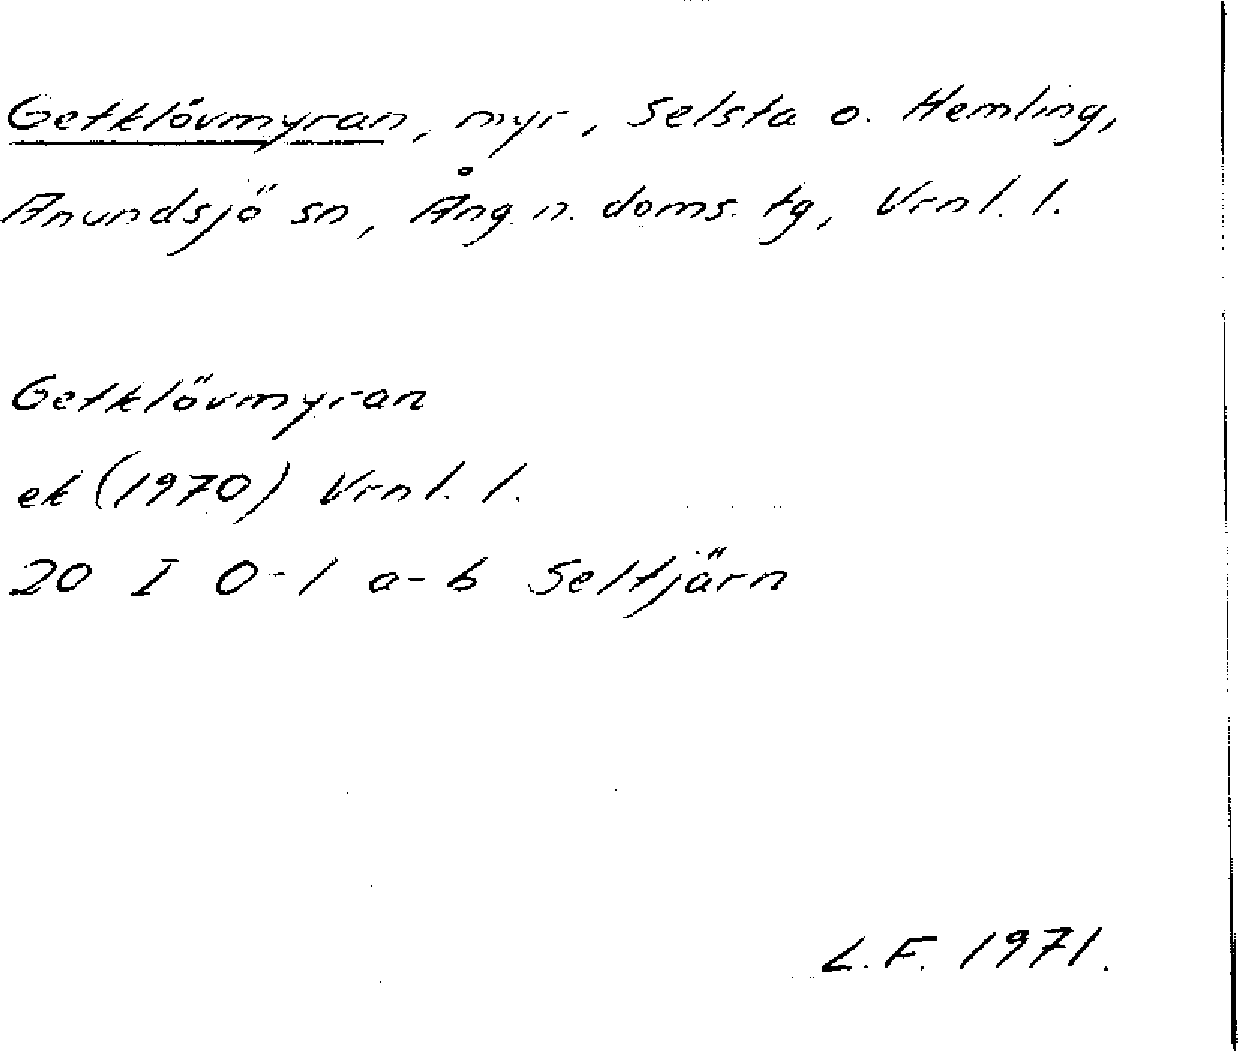 Getklövmyran, myr, Selsta o. Hemling,
Anundsjö sn, Ång. n. doms. tg, Vrnl. l.
Getklövmyran
ek (1970) Vrnl. l.
20 I 0-1 a-b Seltjärn
L.F. 1971.